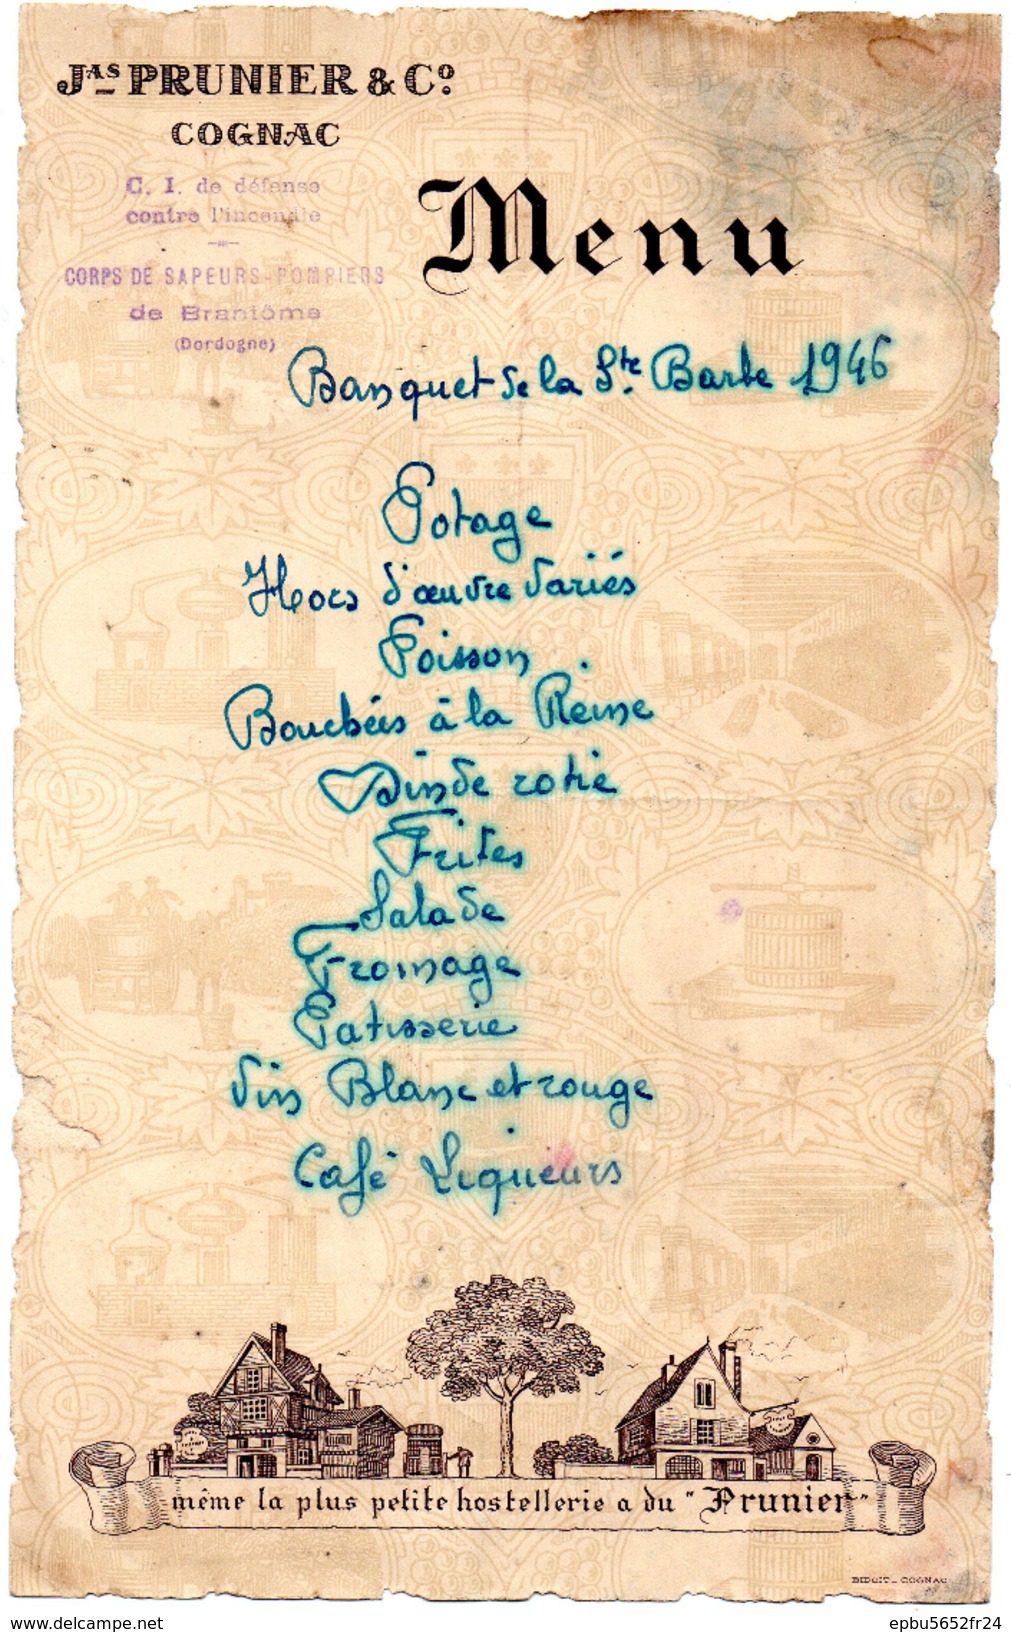 JAS PRUNIER & Co.
COGNAC
C. I. de défense
contre l'incendie
CORPS DE SAPEURS-POMPIERS
de Brantôme
(Dordogne)
Menu
Banquet de la Ste. Barbe 1946
Potage
Hors d'œuvre variés
Poisson
Bouchées à la Reine
Dinde rotie
Frites
Salade
Fromage
Patisserie
Vin Blanc et rouge
Café Liqueurs
même la plus petite hostellerie a du "Prunier"
BIDOIT_ COGNAC
www.delcampe.net
epbu5652fr24